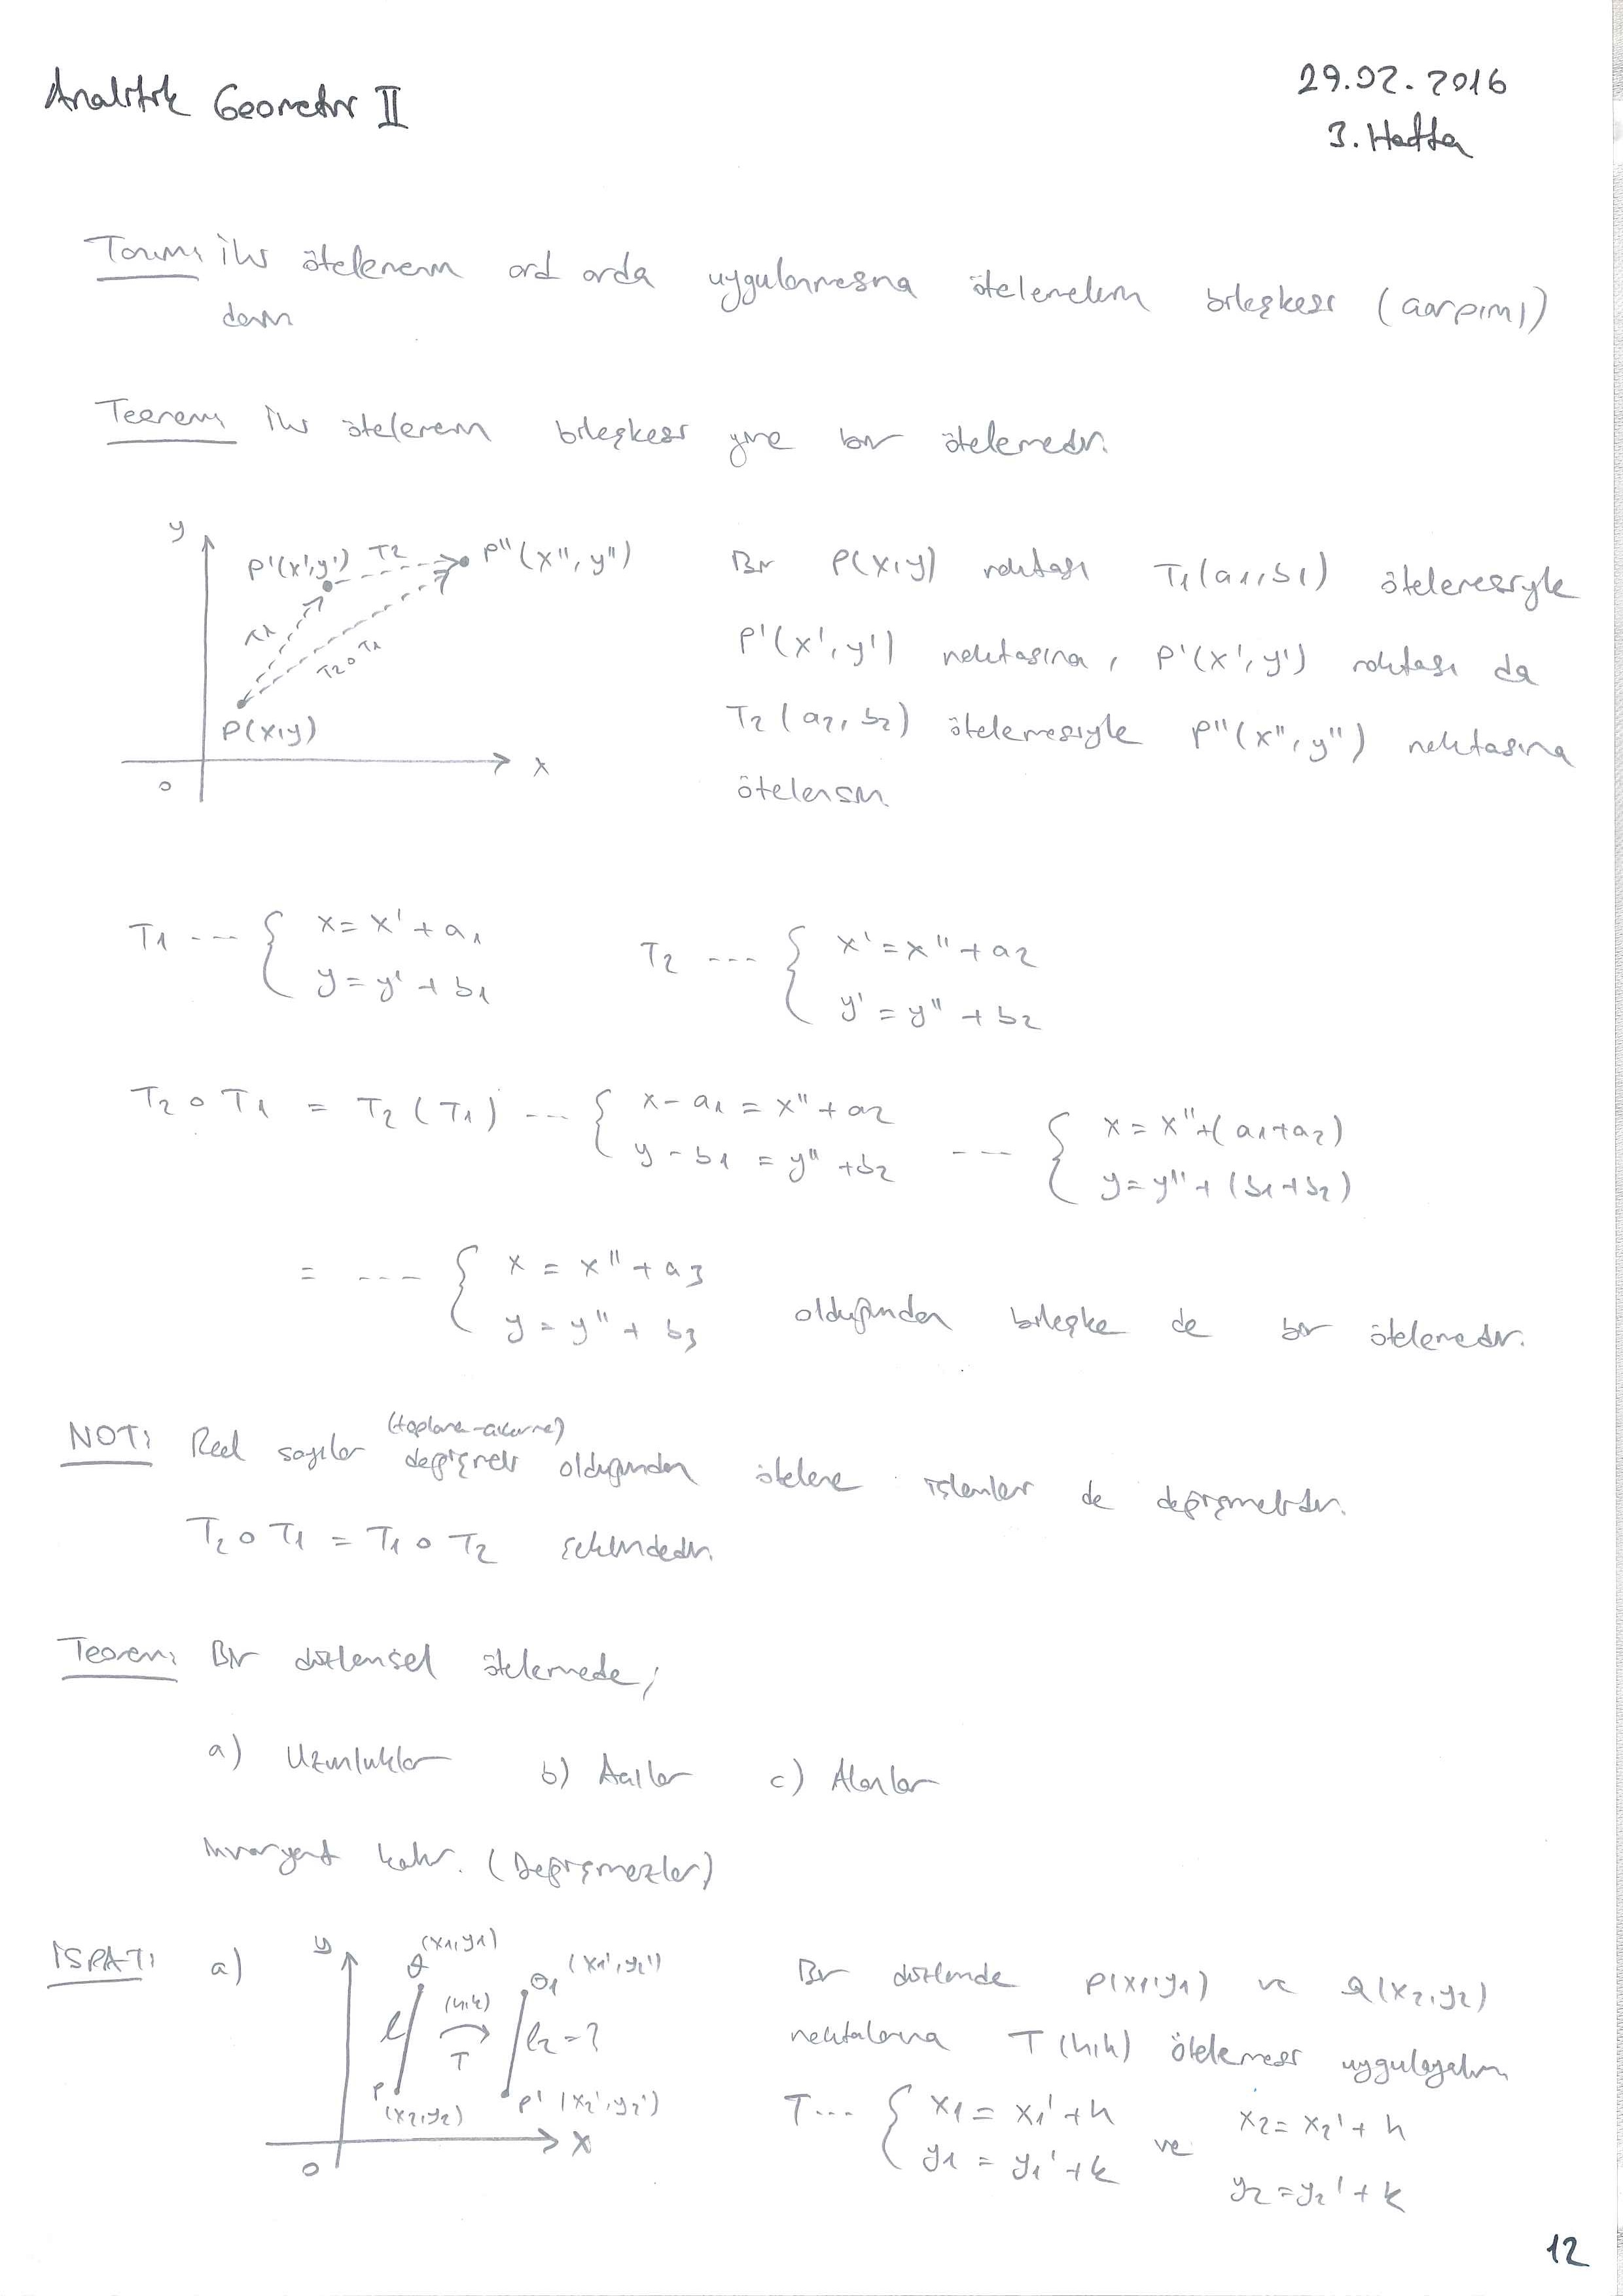 Analitik Geometri II
29.02.2016
3. Hafta
Tanım: İki ötelenenin ard arda uygulanmasına ötelemelerin bileşkesi (çarpımı)
denir
Teorem: İki ötelemenin bileşkesi yine bir ötelemedir.
y
P'(x',y') T2 P''(x'', y'')
T1
T2 o T1
P(x,y)
x
0
Bir P(x,y) noktası T1(a1,b1) ötelemesiyle
P'(x', y') noktasına, P'(x', y') noktası da
T2 (a2, b2) ötelemesiyle P''(x'', y'') noktasına
ötelensin.
T1 --- { x = x' + a1
y = y' + b1
T2 --- { x' = x'' + a2
y' = y'' + b2
T2 o T1 = T2 (T1) --- { x - a1 = x'' + a2
y - b1 = y'' + b2
--- { x = x'' + (a1+a2)
y = y'' + (b1+b2)
= ---- { x = x'' + a3
y = y'' + b3
olduğundan bileşke de bir ötelemedir.
(toplama-çıkarma)
NOT: Reel sayılar değişmeli olduğundan öteleme işlemleri de değişmelidir.
T2 o T1 = T1 o T2 şeklindedir.
Teorem: Bir düzlemsel ötelemede;
a) Uzunluklar b) Açılar c) Alanlar
invaryant kalır. (Değişmezler)
İSPAT: a)
y
(x1,y1)
Q
Q1 (x1', y2')
l
(h,k)
T
l2 = ?
P
(x2,y2)
P' (x2', y2')
x
0
Bir düzlemde P(x1,y1) ve Q(x2,y2)
noktalarına T(h,k) ötelemesi uygulayalım
T... { x1 = x1' + h
y1 = y1' + k
ve
x2 = x2' + h
y2 = y2' + k
12